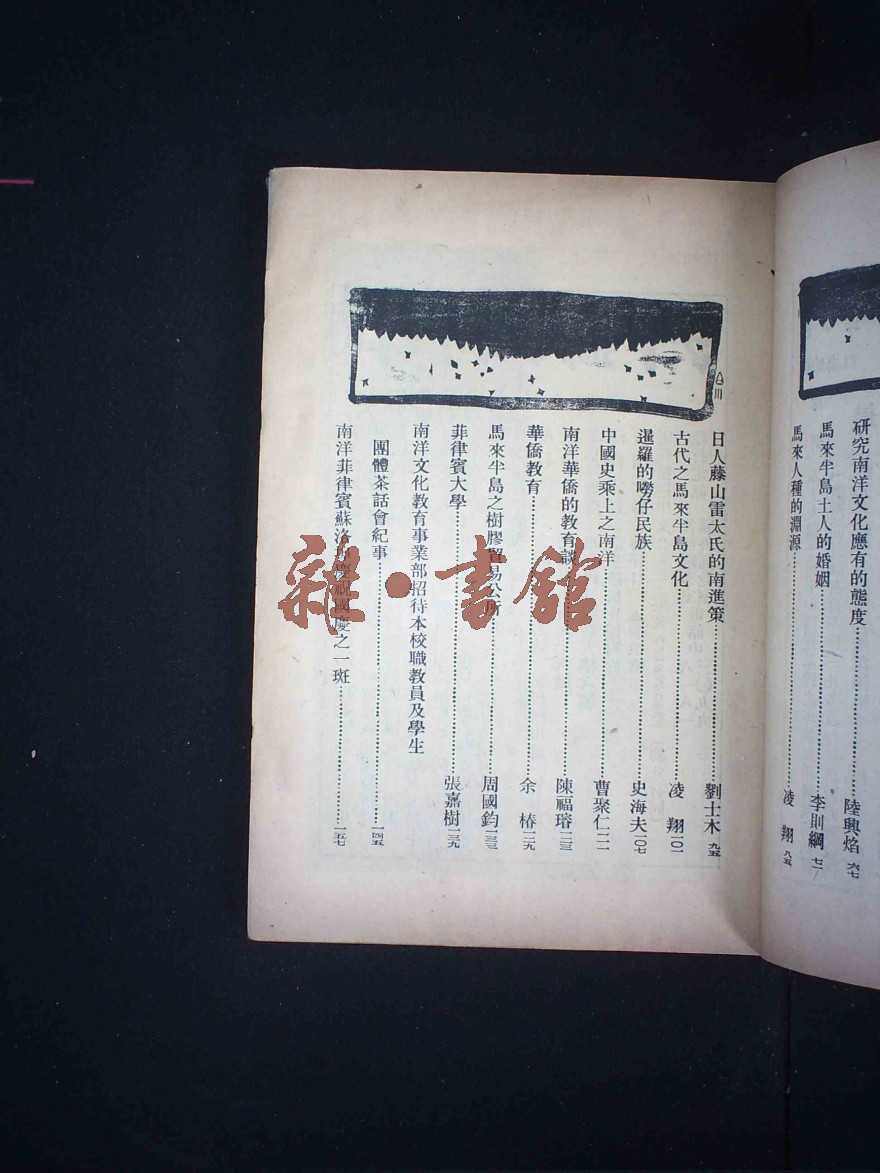 研究南洋文化應有的態度……陸興焰 六七
馬來半島土人的婚姻……李則綱 七二
馬來人種的淵源……凌翔 八五
日人藤山雷太氏的南進策……劉士木 九五
古代之馬來半島文化……凌翔 一〇一
暹羅的嘮仔民族……史海夫 一〇七
中國史乘上之南洋……曹聚仁 一一一
南洋華僑的教育談……陳福璿 一二三
華僑教育……余椿 一二九
馬來半島之樹膠貿易公所……周國鈞 一三三
菲律賓大學……張嘉樹 一三九
南洋文化教育事業部招待本校職教員及學生
團體茶話會紀事……一四五
南洋菲律賓蘇洛埠慶祝國慶之一斑……一五七
雜·書館